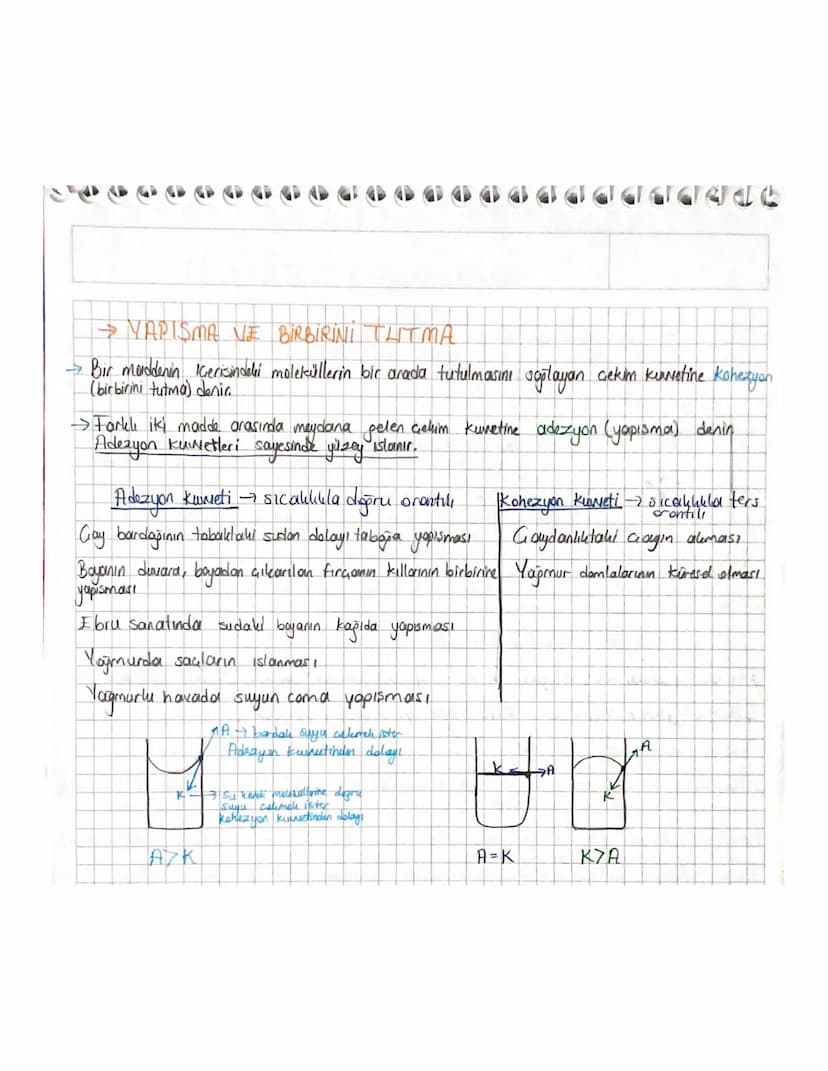 → YAPIŞMA VE BİRBİRİNİ TUTMA
→ Bir maddenin içerisindeki moleküllerin bir arada tutulmasını sağlayan çekim kuvvetine kohezyon
(birbirini tutma) denir.
→ Farklı iki madde arasında meydana gelen çekim kuvvetine adezyon (yapışma) denir.
Adezyon kuvvetleri sayesinde yüzey ıslanır.
Adezyon Kuvveti → sıcaklıkla doğru orantılı
Kohezyon Kuvveti → sıcaklıkla ters
orantılı
Çay bardağının tabaktaki sudan dolayı tabağa yapışması
Çaydanlıktaki çayın akması
Boyanın duvara, boyadan çıkarılan fırçanın kıllarının birbirine
yapışması
Yağmur damlalarının küresel olması
Ebru sanatında sudaki boyanın kağıda yapışması
Yağmurda saçların ıslanması
Yağmurlu havada suyun cama yapışması
A → bardak suyu çekmek ister
Adezyon kuvvetinden dolayı
K → Su kendi moleküllerine doğru
suyu çekmek ister
kohezyon kuvvetinden dolayı
K A
A
K
A>K
A=K
K>A